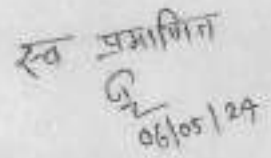 स्व प्रमाणित
06/05/24